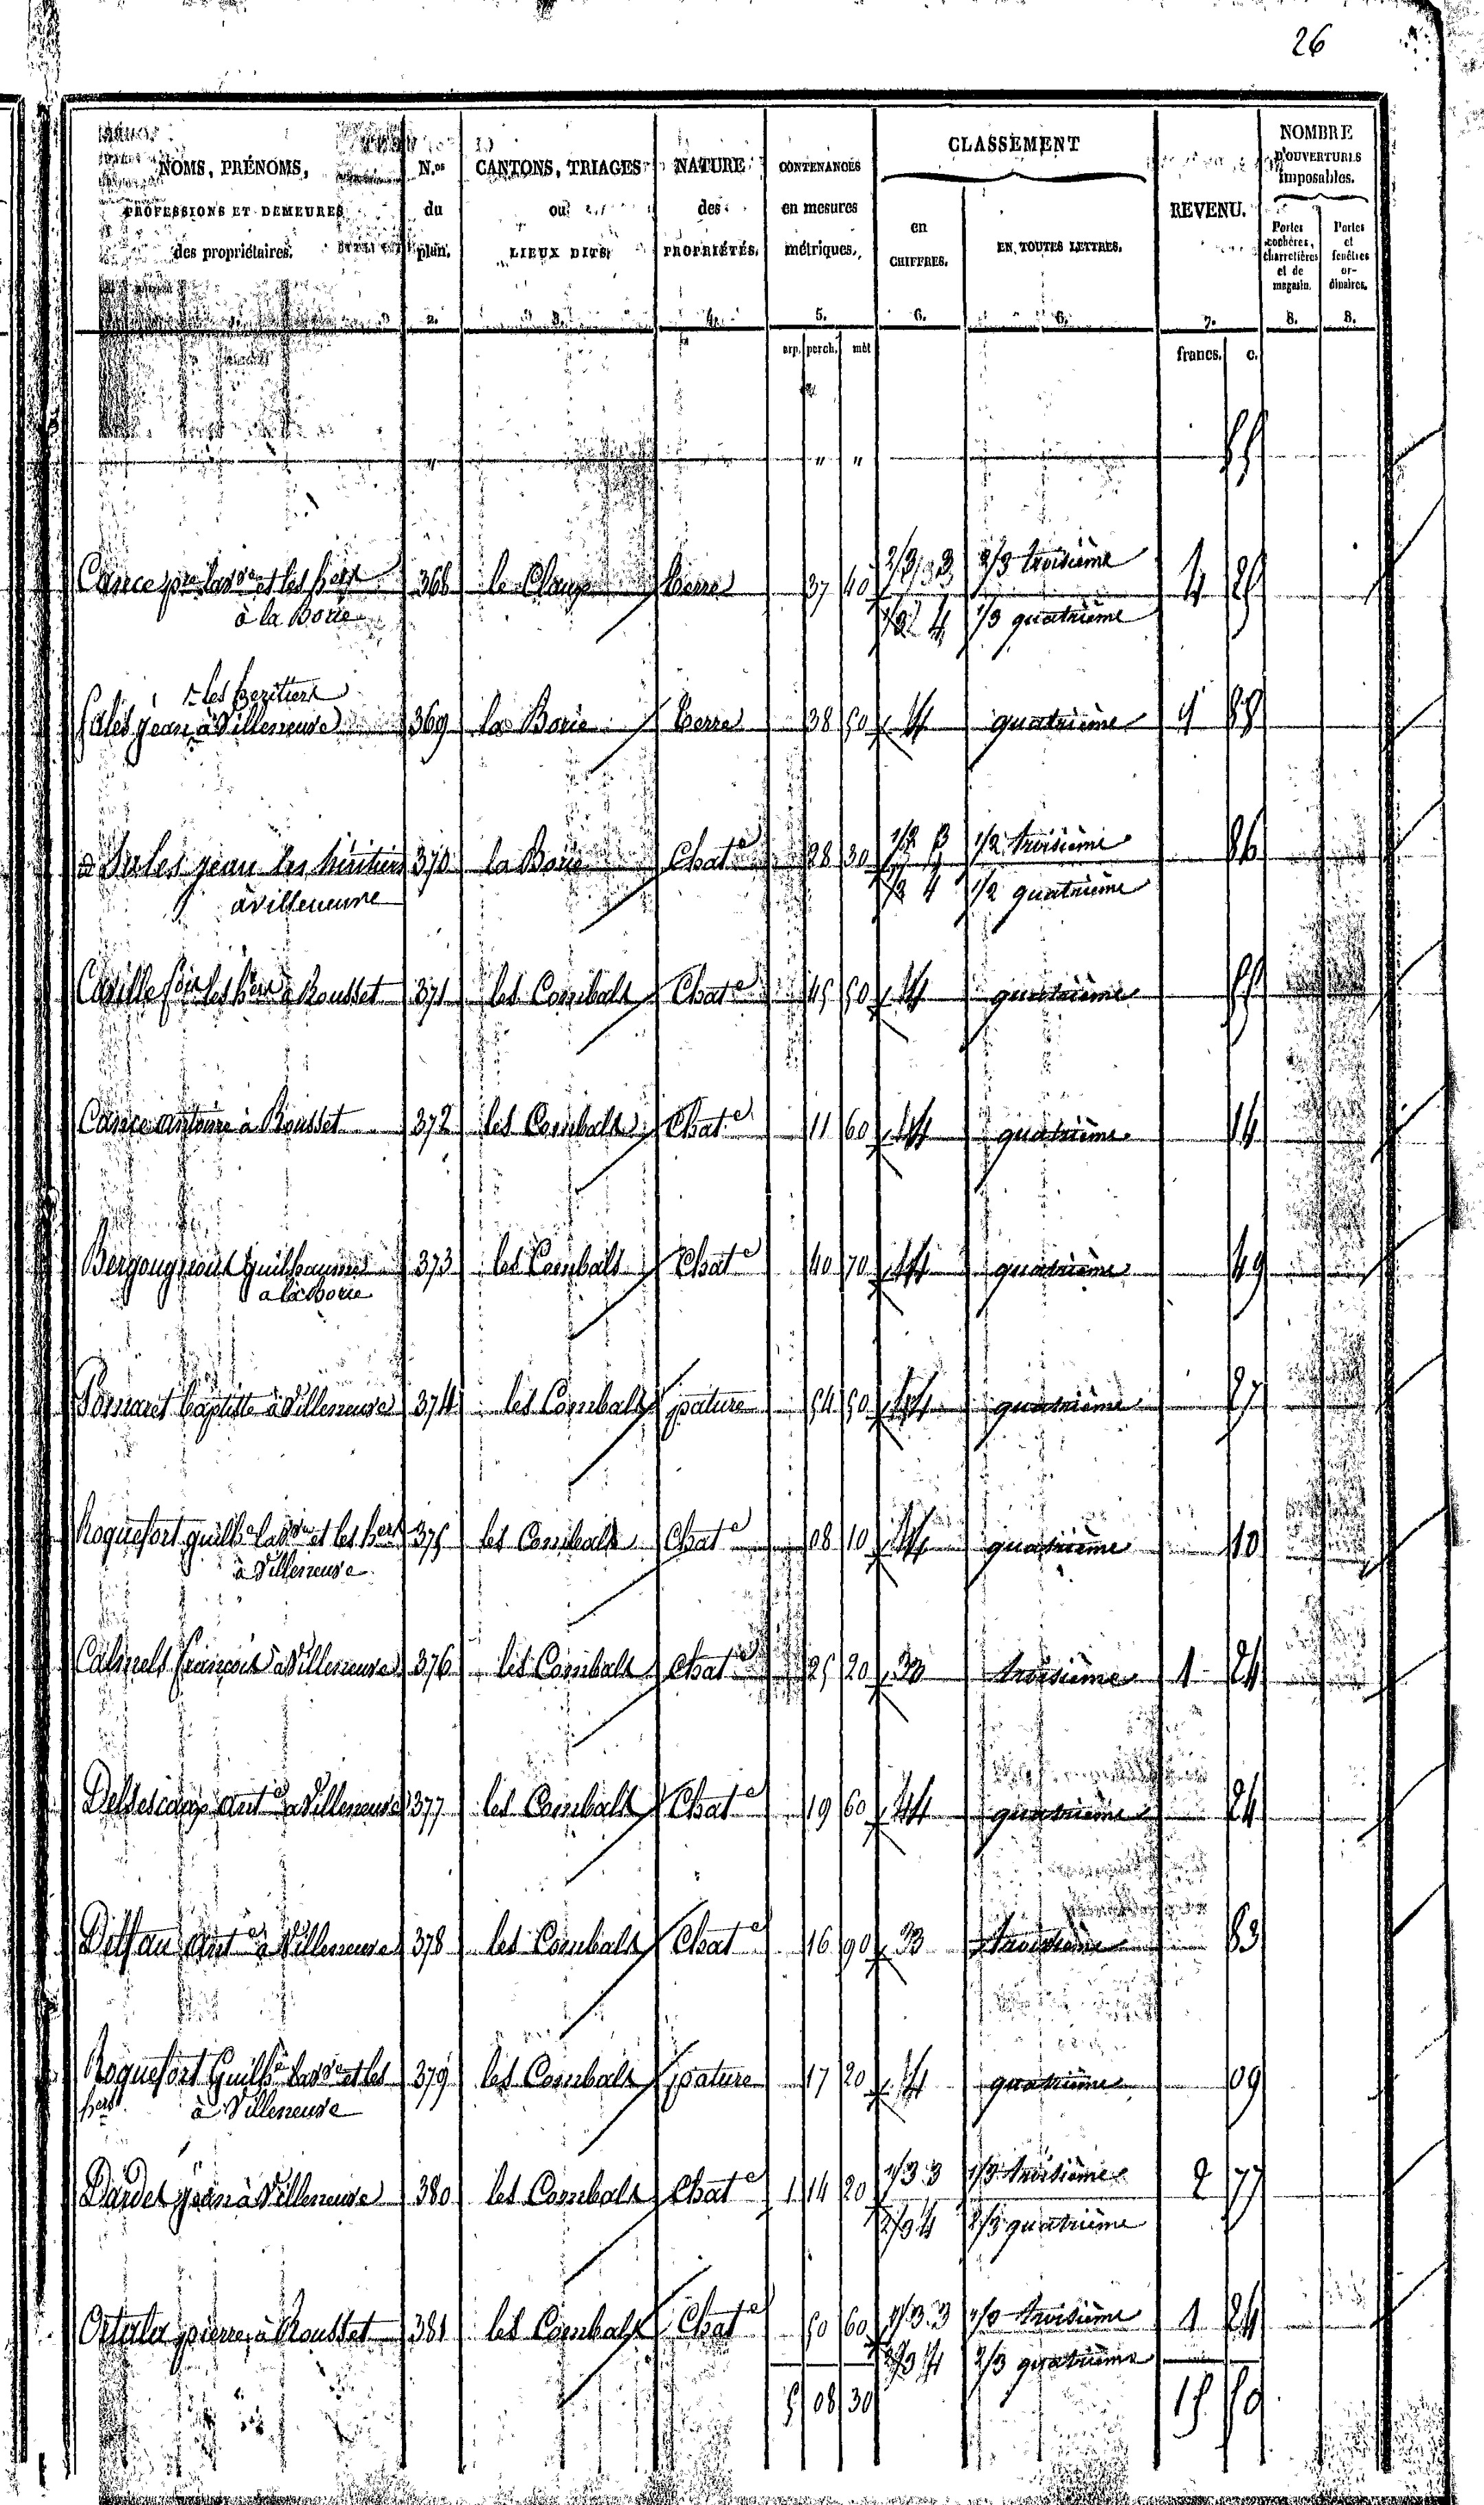 26
NOMS, PRÉNOMS, PROFESSIONS ET DEMEURES des propriétaires. N.os du plan. CANTONS, TRIAGES ou LIEUX DITS. NATURE des PROPRIÉTÉS. CONTENANCES en mesures métriques. CLASSEMENT en CHIFFRES. EN TOUTES LETTRES. REVENU. NOMBRE D'OUVERTURES imposables. Portes cochères, charretières et de magasin. Portes et fenêtres ordinaires.
2. 3. 4. 5. 6. 6. 7. 8. 8.
arp. perch. mèt francs. c.
" " "
Cance la v.ve et les hers 368 le Claux terre 37 40 2/3 3 2/3 troisième 4
à la Borie 1/3 4 1/3 quatrième
les heritiers
jean à Villeneuve 369 la Borie terre 38 50 4 quatrième
jean les héritiers 370 la Borie Chat.e 28 30 1/2 3 1/2 troisième 86
à villeneuve 1/2 4 1/2 quatrième
les hers à Rousset 371 les Combals Chat.e 45 50 4 quatrième 55
Cance antoine à Rousset 372 les Combals Chat.e 11 60 4 quatrième 14
Bergougnoux Guilhaume 373 les Combals Chat.e 40 70 4 quatrième 49
a la Borie
baptiste à Villeneuve 374 les Combals pature 54 50 4 quatrième 27
Roquefort guilh.e la v.ve et les hers 375 les Combals Chat.e 08 10 4 quatrième 10
à Villeneuve
Calmels françois à Villeneuve 376 les Combals Chat.e 25 20 3 troisième 1 24
ant.e à Villeneuve 377 les Combals Chat.e 19 60 4 quatrième 24
Delfau ant.e à Villeneuve 378 les Combals Chat.e 16 90 3 troisième 83
Roquefort Guilh.e la v.ve et les 379 les Combals pature 17 20 4 quatrième 09
hers à Villeneuve
Dardes jean à Villeneuve 380 les Combals Chat.e 1 14 20 1/3 3 1/3 troisième 2 77
2/3 4 2/3 quatrième
pierre à Rousset 381 les Combals Chat.e 50 60 1/3 3 1/3 troisième 1 24
2/3 4 2/3 quatrième
5 08 30